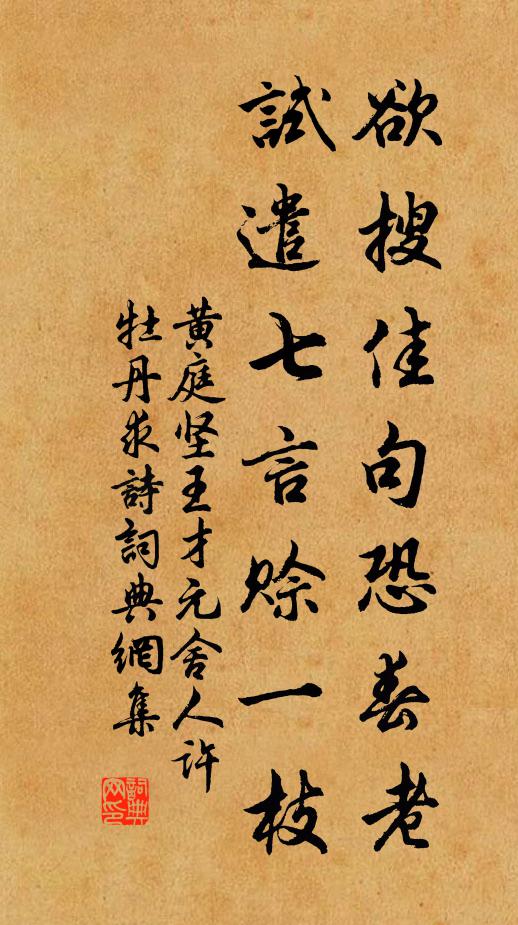 欲搜佳句恐春老
試遣七言賒一枝
黄庭坚王才元舍人许
牡丹求詩詞典網集
詞典网印